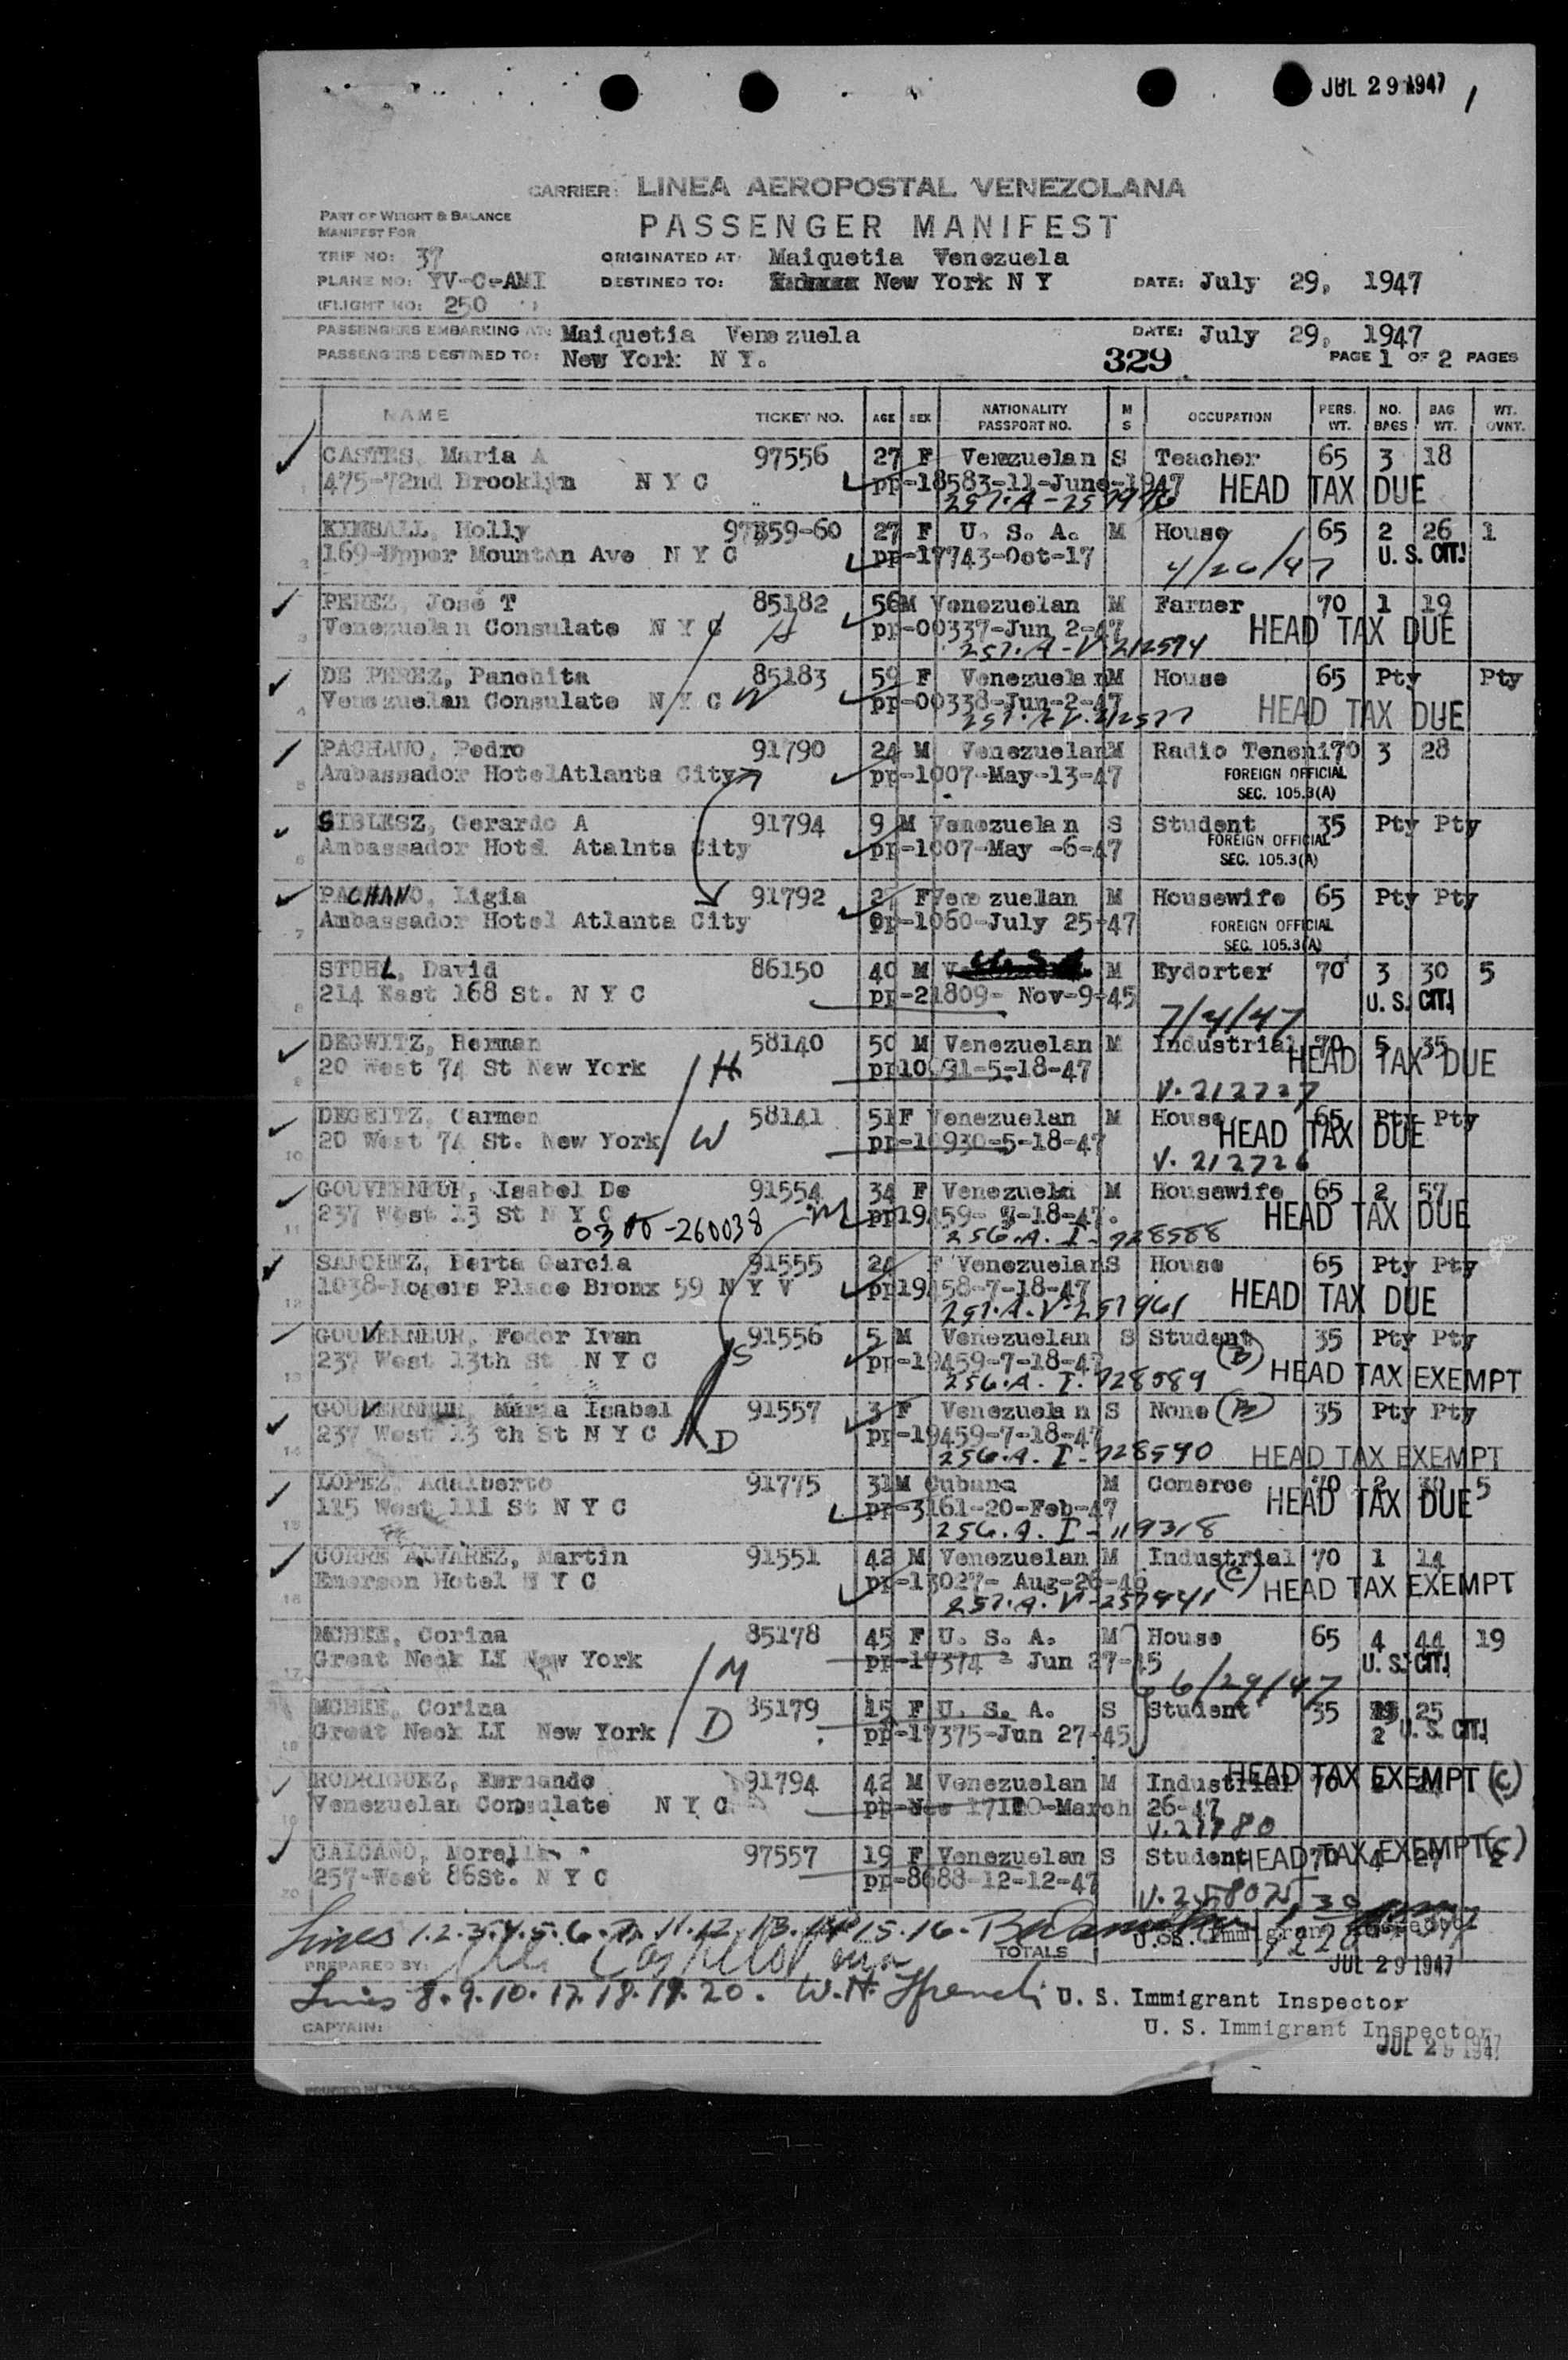 JUL 29 1947 1
CARRIER: LINEA AEROPOSTAL VENEZOLANA
PART OF WEIGHT & BALANCE
MANIFEST FOR
PASSENGER MANIFEST
TRIP NO: 37 ORIGINATED AT: Maiquetia Venezuela
PLANE NO: YV-C-AMI DESTINED TO: New York N Y DATE: July 29, 1947
(FLIGHT NO: 250 )
PASSENGERS EMBARKING AT: Maiquetia Venezuela DATE: July 29, 1947
PASSENGERS DESTINED TO: New York N Y. 329 PAGE 1 OF 2 PAGES
NAME TICKET NO. AGE SEX NATIONALITY PASSPORT NO. M S OCCUPATION PERS. WT. NO. BAGS BAG WT. WT. OVNT.
CASTES, Maria A 97556 27 F Venezuelan S Teacher 65 3 18
1 475-72nd Brooklyn N Y C pp-18583-11-June-1947 HEAD TAX DUE
KIMBALL, Holly 97359-60 27 F U. S. A. M House 65 2 26 1
169-Upper Mountan Ave N Y C pp-17743-Oct-17 4/26/47 U. S. CIT.
PEREZ, José T 85182 56 M Venezuelan M Farmer 70 1 19
3 Venezuelan Consulate N Y C H pp-00337-Jun 2-47 HEAD TAX DUE
257.A-V-212574
DE PEREZ, Panchita 85183 59 F Venezuelan M House 65 Pty Pty
4 Venezuelan Consulate N Y C W pp-00338-Jun-2-47 HEAD TAX DUE
PACHANO, Pedro 91790 24 M Venezuelan M Radio Tencni 70 3 28
5 Ambassador HotelAtlanta City pp-1007-May-13-47 FOREIGN OFFICIAL
SEC. 105.3(A)
SIBLESZ, Gerardo A 91794 9 M Venezuelan S Student 35 Pty Pty
6 Ambassador Hotel Atalnta City pp-1007-May -6-47 FOREIGN OFFICIAL
SEC. 105.3(A)
PACHANO, Ligia 91792 F Venezuelan M Housewife 65 Pty Pty
7 Ambassador Hotel Atlanta City pp-1060-July 25-47 FOREIGN OFFICIAL
SEC. 105.3(A)
STUHL, David 86150 40 M M Eydorter 70 3 30 5
8 214 East 168 St. N Y C pp-21809- Nov-9-45 7/4/47 U. S. CIT.
DEGWITZ, Herman 58140 50 M Venezuelan M Industrial 70 5 35
9 20 West 74 St New York H pp10931-5-18-47 HEAD TAX DUE
V.212727
DEGEITZ, Carmen 58141 51 F Venezuelan M House 65 Pty Pty
10 20 West 74 St. New York W pp-10930-5-18-47 HEAD TAX DUE
V. 212726
GOUVERNEUR, Isabel De 91554 34 F Venezuela M Housewife 65 2 57
11 237 West 13 St N Y C M pp19459- 7-18-47. HEAD TAX DUE
0300-260038 256.A. I-728588
SANCHEZ, Berta Garcia 91555 24 F Venezuelan S House 65 Pty Pty
12 1038-Rogers Place Bronx 59 N Y V pp19458-7-18-47 HEAD TAX DUE
257.A.V-257961
GOUVERNEUR, Fedor Ivan 91556 5 M Venezuelan S Student 35 Pty Pty
13 237 West 13th St N Y C S pp-19459-7-18-47 (B) HEAD TAX EXEMPT
256.A. I-728589
GOUVERNEUR, Maria Isabel 91557 3 F Venezuelan S None (B) 35 Pty Pty
14 237 West 13 th St N Y C D pp-19459-7-18-47
256.A. I-728590 HEAD TAX EXEMPT
LOPEZ, Adalberto 91775 31 M Cubana M Comerce 70 2 30 5
15 115 West 111 St N Y C pp-3161-20-Feb-47 HEAD TAX DUE
256.A. I-119318
CORRE ALVAREZ, Martin 91551 42 M Venezuelan M Industrial 70 1 14
16 Emerson Hotel N Y C pp-13027- Aug-26-46 (C) HEAD TAX EXEMPT
257.A.V-257941
MCBEE, Corina 85178 45 F U. S. A. M House 65 4 44 19
17 Great Neck LI New York M pp-17374 - Jun 27-45 6/29/47 U. S. CIT.
MCBEE, Corina 85179 15 F U. S. A. S Student 35 25
18 Great Neck LI New York D pp-17375-Jun 27-45 2 U. S. CIT.
RODRIGUEZ, Fernando 91794 42 M Venezuelan M Industrial 70 HEAD TAX EXEMPT (C)
19 Venezuelan Consulate N Y C March 26-47
CALCANO, Morella 97557 19 F Venezuelan S Student 70 4 27 HEAD TAX EXEMPT (C)
20 257-West 86St. N Y C pp-8688-12-12-47
V.258075
Lines 1.2.3.4.5.6.7.11.12.13.14.15.16. TOTALS U. S. Immigrant Inspector
PREPARED BY: JUL 29 1947
Lines 8.9.10.17.18.19.20. W.H. French U. S. Immigrant Inspector
CAPTAIN: U. S. Immigrant Inspector
JUL 29 1947